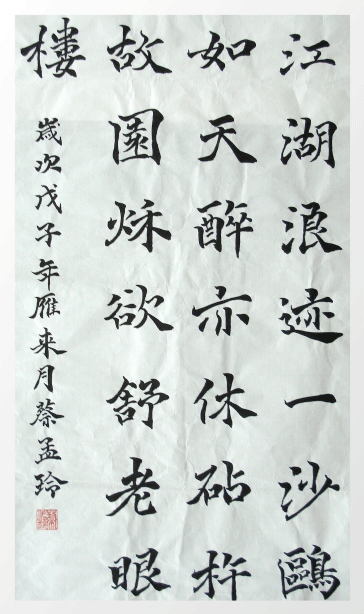 江湖浪迹一沙鷗
如天醉亦休砧杵
故園秌欲舒老眼
樓
歲次戊子年雁来月蔡孟玲